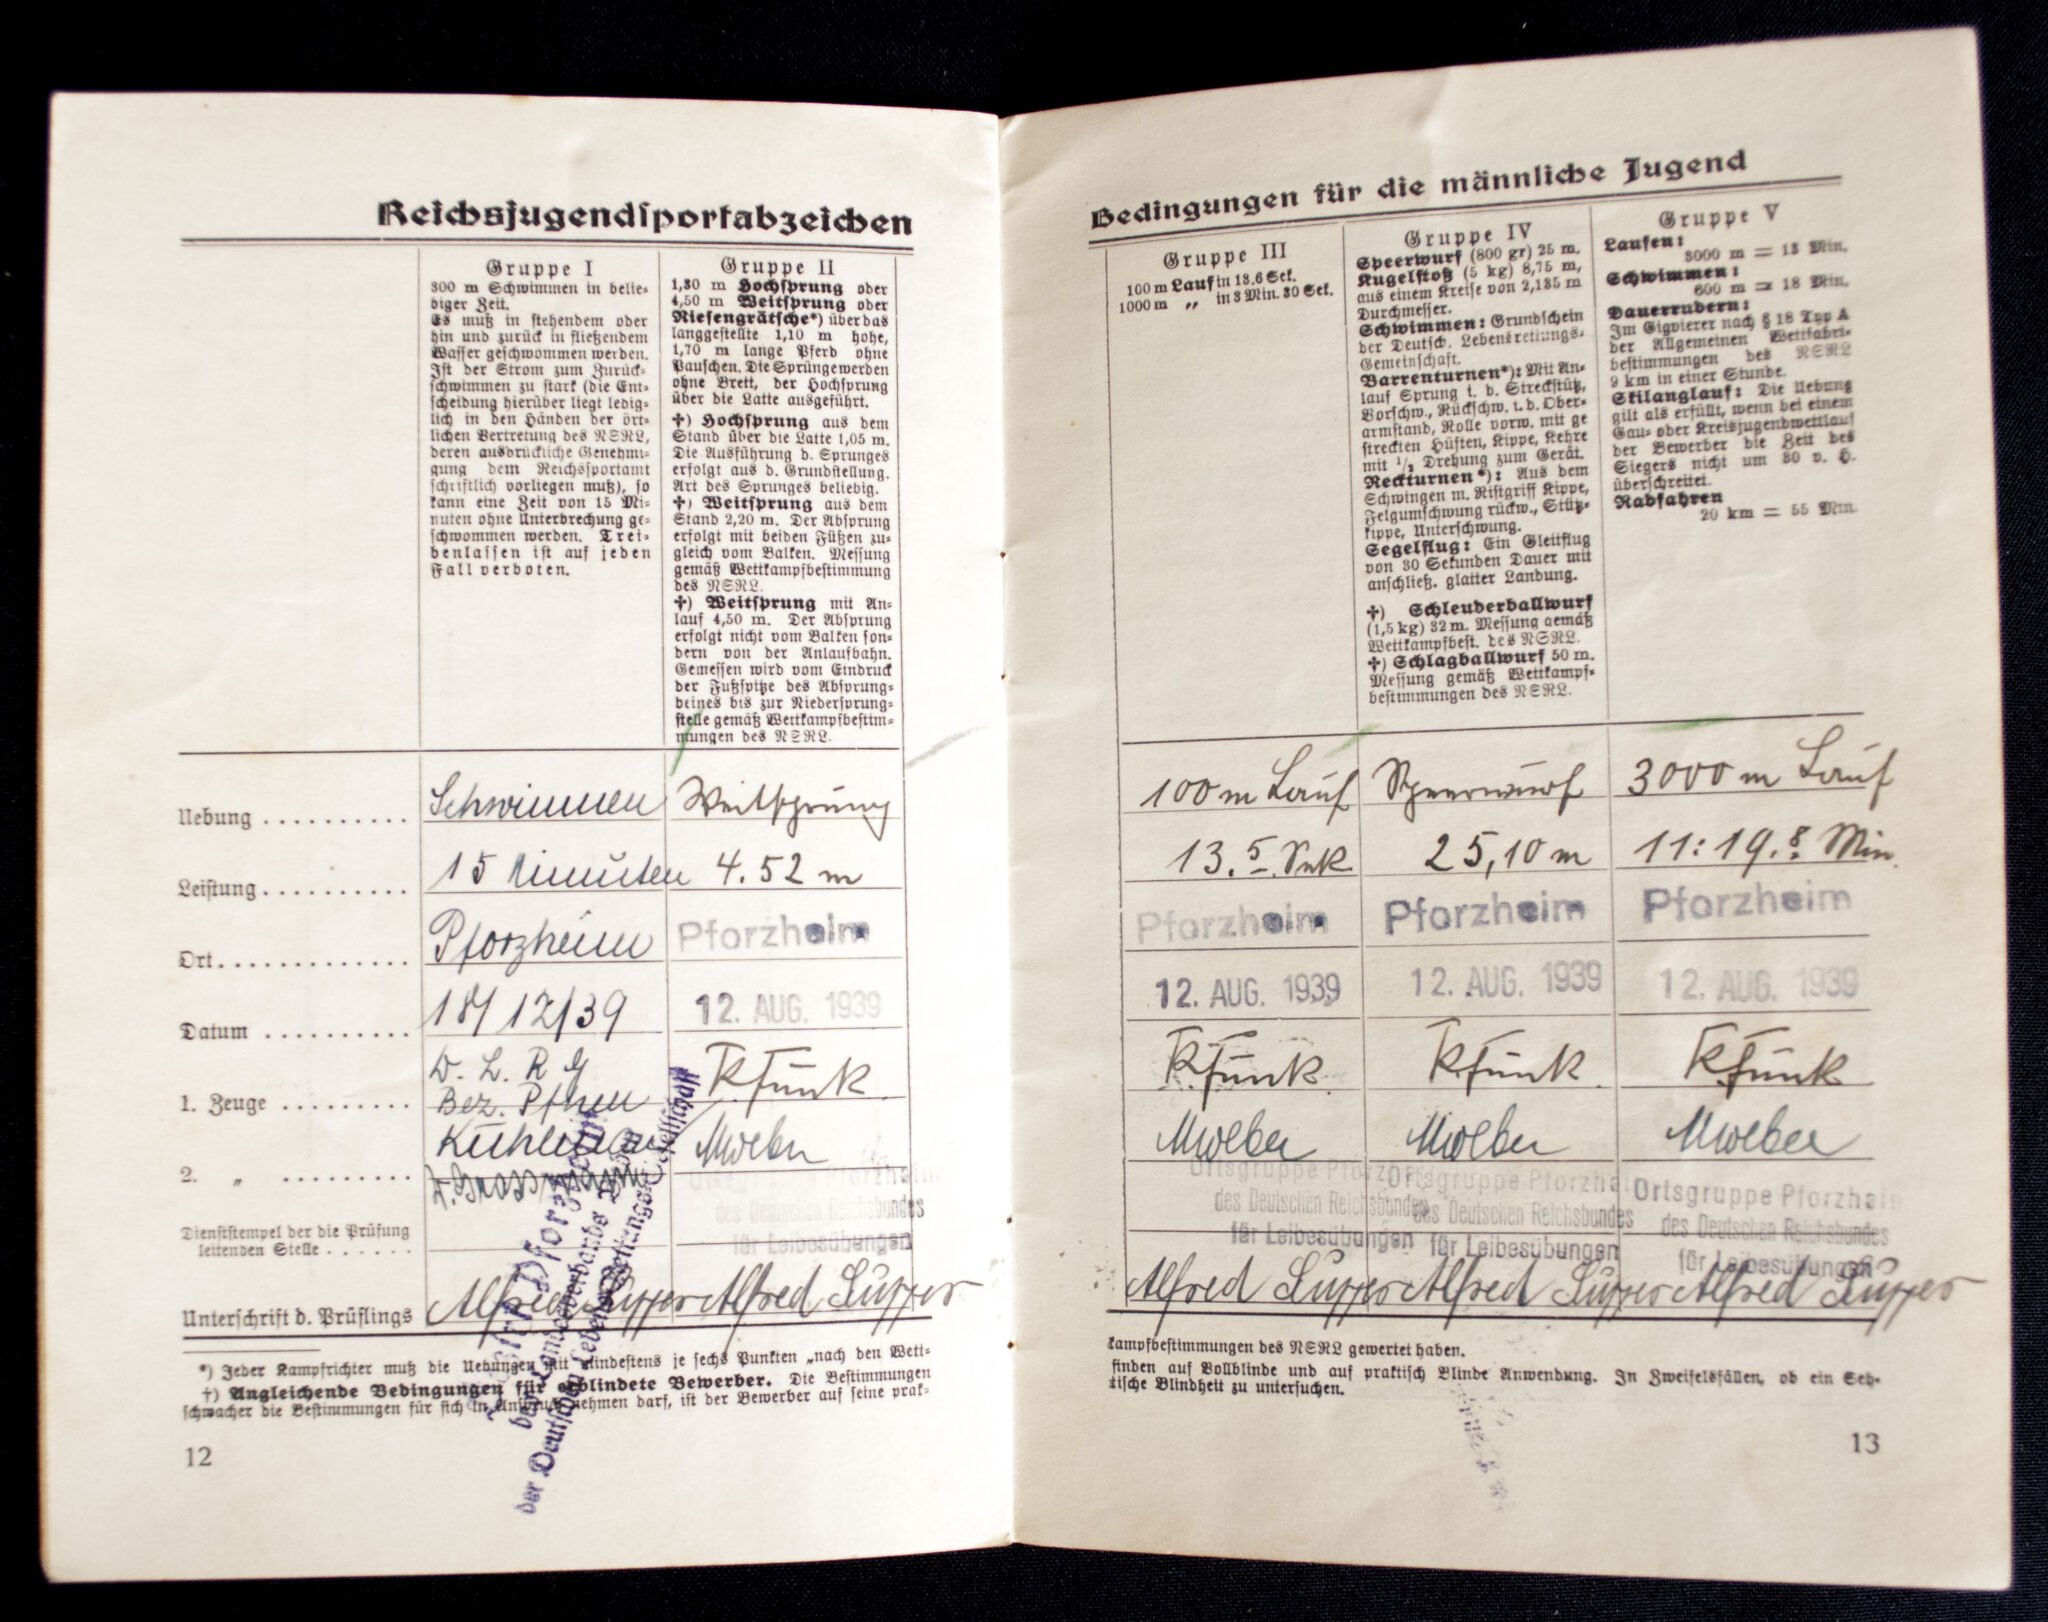 Reichsjugendsportabzeichen
Gruppe I
300 m Schwimmen in belie-
biger Zeit.
Es muß in stehendem oder
hin und zurück in fließendem
Wasser geschwommen werden.
Ist der Strom zum Zurück-
schwimmen zu stark (die Ent-
scheidung hierüber liegt ledig-
lich in den Händen der ört-
lichen Vertretung des NSRL,
deren ausdrückliche Genehmi-
gung dem Reichssportamt
schriftlich vorliegen muß), so
kann eine Zeit von 15 Mi-
nuten ohne Unterbrechung ge-
schwommen werden. Trei-
benlassen ist auf jeden
Fall verboten.
Gruppe II
1,30 m Hochsprung oder
4,50 m Weitsprung oder
Riesengrätsche*) über das
langgestellte 1,10 m hohe,
1,70 m lange Pferd ohne
Pauschen. Die Sprünge werden
ohne Brett, der Hochsprung
über die Latte ausgeführt.
†) Hochsprung aus dem
Stand über die Latte 1,05 m.
Die Ausführung d. Sprunges
erfolgt aus d. Grundstellung.
Art des Sprunges beliebig.
†) Weitsprung aus dem
Stand 2,20 m. Der Absprung
erfolgt mit beiden Füßen zu-
gleich vom Balken. Messung
gemäß Wettkampfbestimmung
des NSRL.
†) Weitsprung mit An-
lauf 4,50 m. Der Absprung
erfolgt nicht vom Balken son-
dern von der Anlaufbahn.
Gemessen wird vom Eindruck
der Fußspitze des Absprung-
beines bis zur Niedersprung-
stelle gemäß Wettkampfbestim-
mungen des NSRL.
Uebung .......... Schwimmen Weitsprung
Leistung .......... 15 Minuten 4.52 m
Ort ............. Pforzheim Pforzheim
Datum .......... 18/12/39 12. AUG. 1939
D. L. R G
1. Zeuge ......... Bez. Pfhm K Funk
2. „ ......... MWeber
Dienststempel der die Prüfung
leitenden Stelle ......
Ortsgruppe Pforzheim
des Deutschen Reichsbundes
für Leibesübungen
Unterschrift d. Prüflings Alfred Supper Alfred Supper
Bezirk Pforzheim
des Landesverbands Baden
der Deutschen Lebens-Rettungs-Gesellschaft
*) Jeder Kampfrichter muß die Uebungen mit mindestens je sechs Punkten „nach den Wett-
†) Angleichende Bedingungen für erblindete Bewerber. Die Bestimmungen
schwacher die Bestimmungen für sich in Anspruch nehmen darf, ist der Bewerber auf seine prak-
12
Bedingungen für die männliche Jugend
Gruppe III
100 m Lauf in 13.6 Sek.
1000 m „ in 3 Min. 30 Sek.
Gruppe IV
Speerwurf (800 gr) 25 m.
Kugelstoß (5 kg) 8,75 m,
aus einem Kreise von 2,135 m
Durchmesser.
Schwimmen: Grundschein
der Deutsch. Lebensrettungs-
Gemeinschaft.
Barrenturnen*): Mit An-
lauf Sprung i. d. Streckstütz,
Vorschw., Rückschw. i. d. Ober-
armstand, Rolle vorw. mit ge
streckten Hüften, Kippe, Kehre
mit ½ Drehung zum Gerät.
Reckturnen*): Aus dem
Schwingen m. Ristgriff Kippe,
Felgumschwung rückw., Stütz-
kippe, Unterschwung.
Segelflug: Ein Gleitflug
von 30 Sekunden Dauer mit
anschließ. glatter Landung.
†) Schleuderballwurf
(1,5 kg) 32 m. Messung gemäß
Wettkampfbest. des NSRL.
†) Schlagballwurf 50 m.
Messung gemäß Wettkampf-
bestimmungen des NSRL.
Gruppe V
Laufen:
3000 m = 13 Min.
Schwimmen:
600 m = 18 Min.
Dauerrudern:
Im Gigvierer nach § 18 Typ A
der Allgemeinen Wettfahrt-
bestimmungen des NSRL
9 km in einer Stunde.
Skilanglauf: Die Uebung
gilt als erfüllt, wenn bei einem
Gau- oder Kreisjugendwettlauf
der Bewerber die Zeit des
Siegers nicht um 30 v. H.
überschreitet.
Radfahren
20 km = 55 Min.
100 m Lauf Speerwurf 3000 m Lauf
13.5 Sek 25,10 m 11:19.8 Min.
Pforzheim Pforzheim Pforzheim
12. AUG. 1939 12. AUG. 1939 12. AUG. 1939
K Funk K Funk K Funk
MWeber MWeber MWeber
Ortsgruppe Pforzheim Ortsgruppe Pforzheim Ortsgruppe Pforzheim
des Deutschen Reichsbundes des Deutschen Reichsbundes des Deutschen Reichsbundes
für Leibesübungen für Leibesübungen für Leibesübungen
Alfred Supper Alfred Supper Alfred Supper
kampfbestimmungen des NSRL gewertet haben.
finden auf Vollblinde und auf praktisch Blinde Anwendung. In Zweifelsfällen, ob ein Seh-
tische Blindheit zu untersuchen.
13